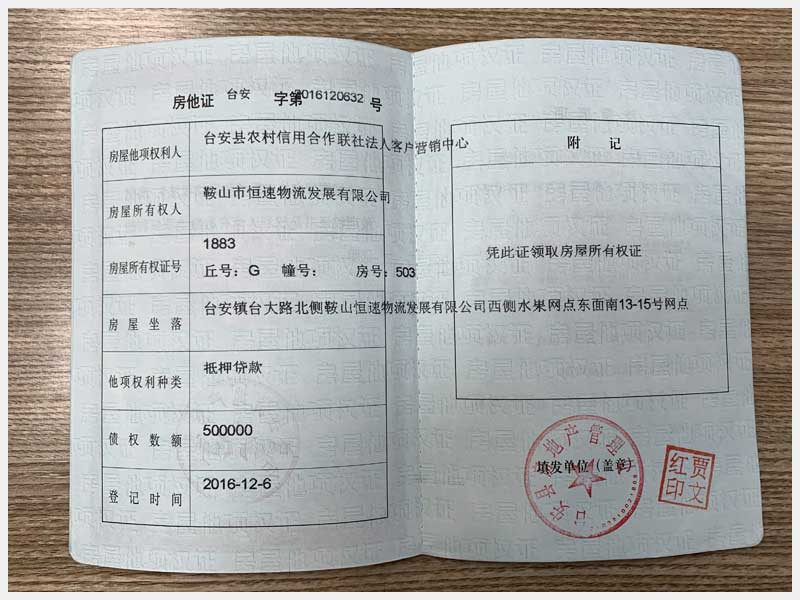 房他证 台安 字第2016120632号
房屋他项权利人 台安县农村信用合作联社法人客户营销中心
房屋所有权人 鞍山市恒速物流发展有限公司
房屋所有权证号 1883
丘号：G 幢号： 房号：503
房屋坐落 台安镇台大路北侧鞍山恒速物流发展有限公司西侧水果网点东面南13-15号网点
他项权利种类 抵押贷款
债权数额 500000
登记时间 2016-12-6
附记
凭此证领取房屋所有权证
填发单位（盖章）
台安县房地产管理
贾文红印